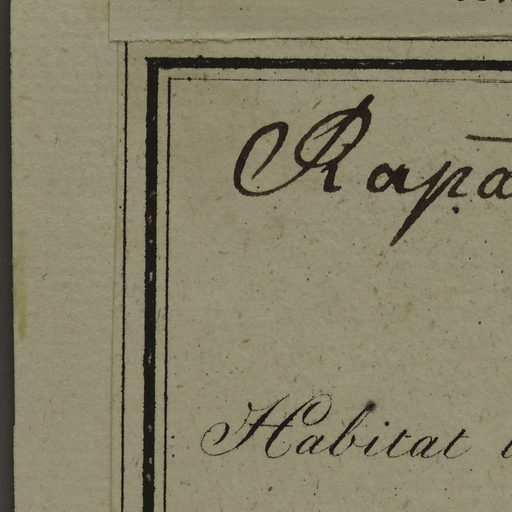 Rapa
Habitat